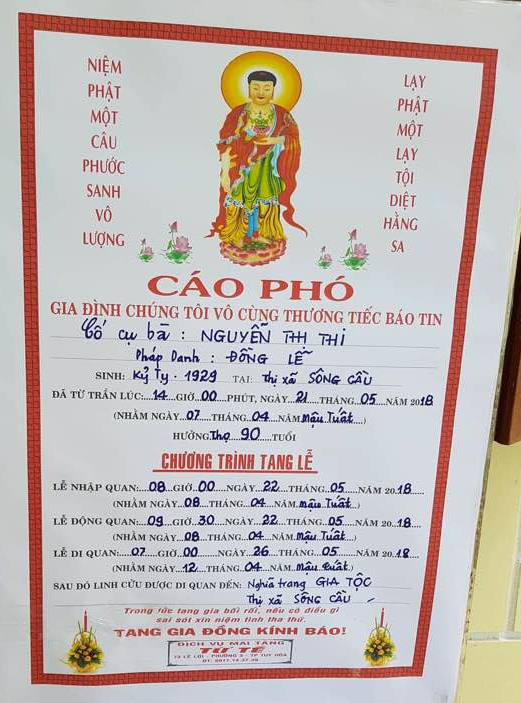 NIỆM
PHẬT
MỘT
CÂU
PHƯỚC
SANH
VÔ
LƯỢNG
LẠY
PHẬT
MỘT
LẠY
TỘI
DIỆT
HẰNG
SA
CÁO PHÓ
GIA ĐÌNH CHÚNG TÔI VÔ CÙNG THƯƠNG TIẾC BÁO TIN
Cố cụ bà : NGUYỄN THỊ THI
Pháp Danh : ĐỒNG LỄ
SINH: Kỷ Tỵ - 1929 TẠI: Thị xã SÔNG CẦU
ĐÃ TỪ TRẦN LÚC:...14...GIỜ.00...PHÚT, NGÀY...21...THÁNG...05...NĂM 2018
(NHẰM NGÀY...07...THÁNG...04...NĂM Mậu Tuất...)
HƯỞNG Thọ 90 TUỔI
CHƯƠNG TRÌNH TANG LỄ
LỄ NHẬP QUAN:...08...GIỜ...00...NGÀY...22...THÁNG...05...NĂM 20.18...
(NHẰM NGÀY...08...THÁNG...04...NĂM Mậu Tuất...)
LỄ ĐỘNG QUAN:...09...GIỜ...30...NGÀY...22...THÁNG...05...NĂM 20.18...
(NHẰM NGÀY...08...THÁNG...04...NĂM Mậu Tuất...)
LỄ DI QUAN:...07...GIỜ...00...NGÀY...26...THÁNG...05...NĂM 20.18...
(NHẰM NGÀY...12...THÁNG...04...NĂM Mậu tuất...)
SAU ĐÓ LINH CỮU ĐƯỢC DI QUAN ĐẾN: Nghĩa trang GIA TỘC
Thị xã SÔNG CẦU
Trong lúc tang gia bối rối, nếu có điều gì
sai sót xin niệm tình tha thứ.
TANG GIA ĐỒNG KÍNH BÁO!
DỊCH VỤ MAI TÁNG
TỪ TẾ
LÊ LỢI - PHƯỜNG 3 - TP TUY HÒA